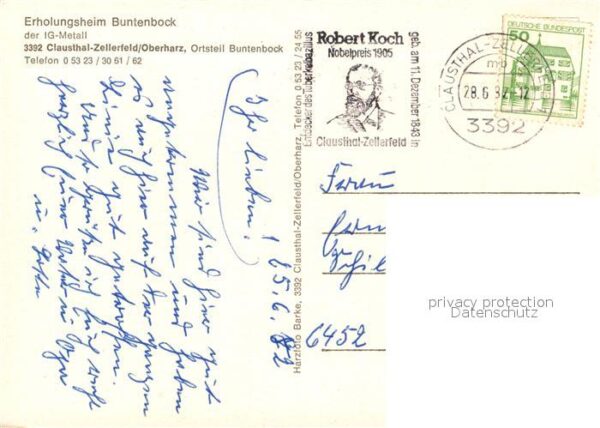 Erholungsheim Buntenbock
der IG-Metall
3392 Clausthal-Zellerfeld/Oberharz, Ortsteil Buntenbock
Telefon 0 53 23 / 30 61 / 62
Entdecker des Tuberkelbazillus
Robert Koch
Nobelpreis 1905
geb. am 11. Dezember 1843 in
Clausthal-Zellerfeld
CLAUSTHAL-ZELLERFELD
mb
28.6.82-12
3392
50
DEUTSCHE BUNDESPOST
Harzfoto Barke, 3392 Clausthal-Zellerfeld/Oberharz, Telefon 0 53 23 / 24 55
25.6.82
Ihr Lieben!
Wir sind hier gut
und haben
es auch hier auf der ganzen
Linie gut getroffen.
herzlich
Frau
6452
privacy protection
Datenschutz